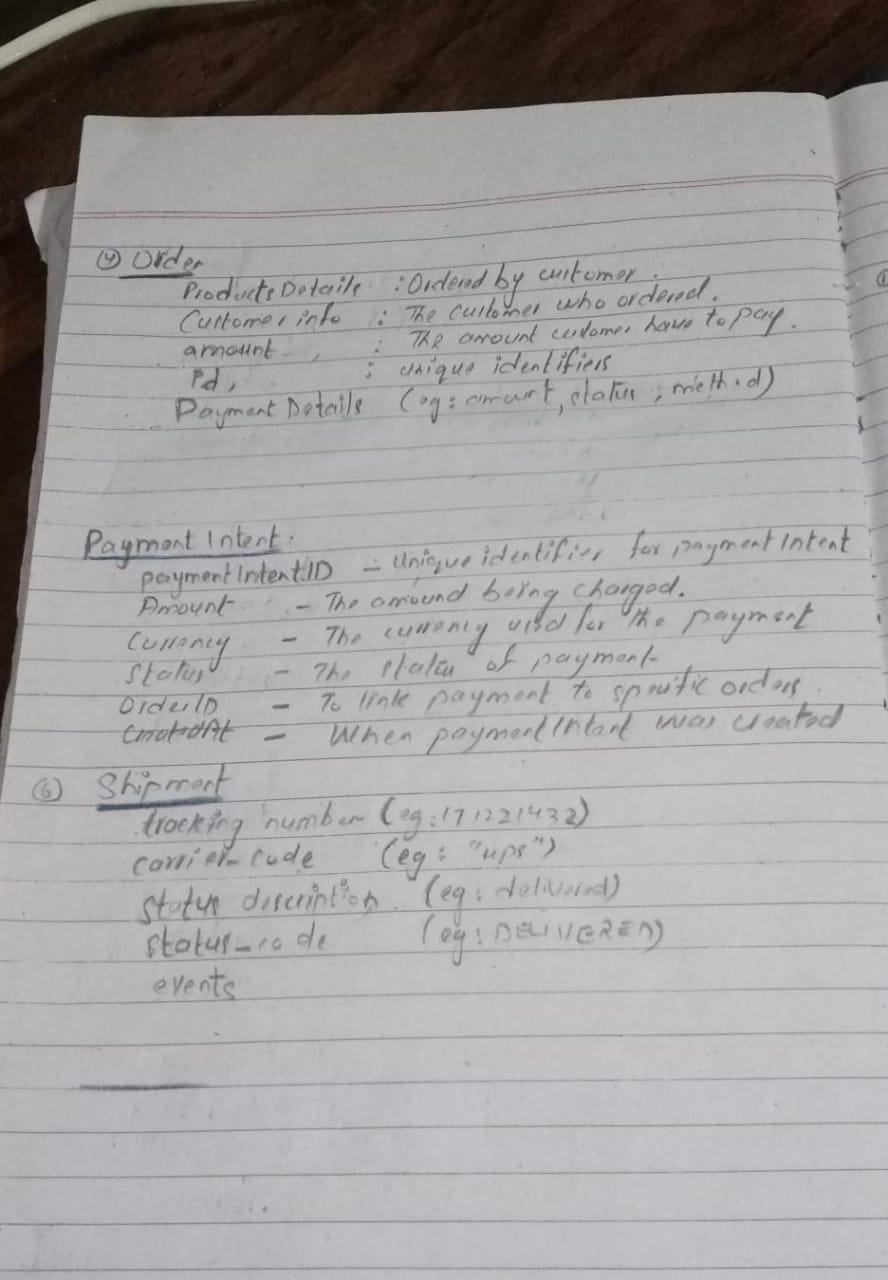 ④ Order
Products Details : Ordered by customer.
Customer info : The customer who ordered.
amount : The amount customer have to pay.
Id, : unique identifiers
Payment Details (eg: amount, status, method)
Payment Intent:
payment Intent ID - Unique identifier for payment Intent
Amount - The amound being charged.
Currency - The currency used for the payment
Status - The status of payment
OrderID - To link payment to specific orders.
CreatedAt - When payment Intent was created
⑥ Shipment
tracking number (eg: 171221432)
carrier-code (eg: "ups")
status description (eg: delivered)
status-code (eg: DELIVERED)
events